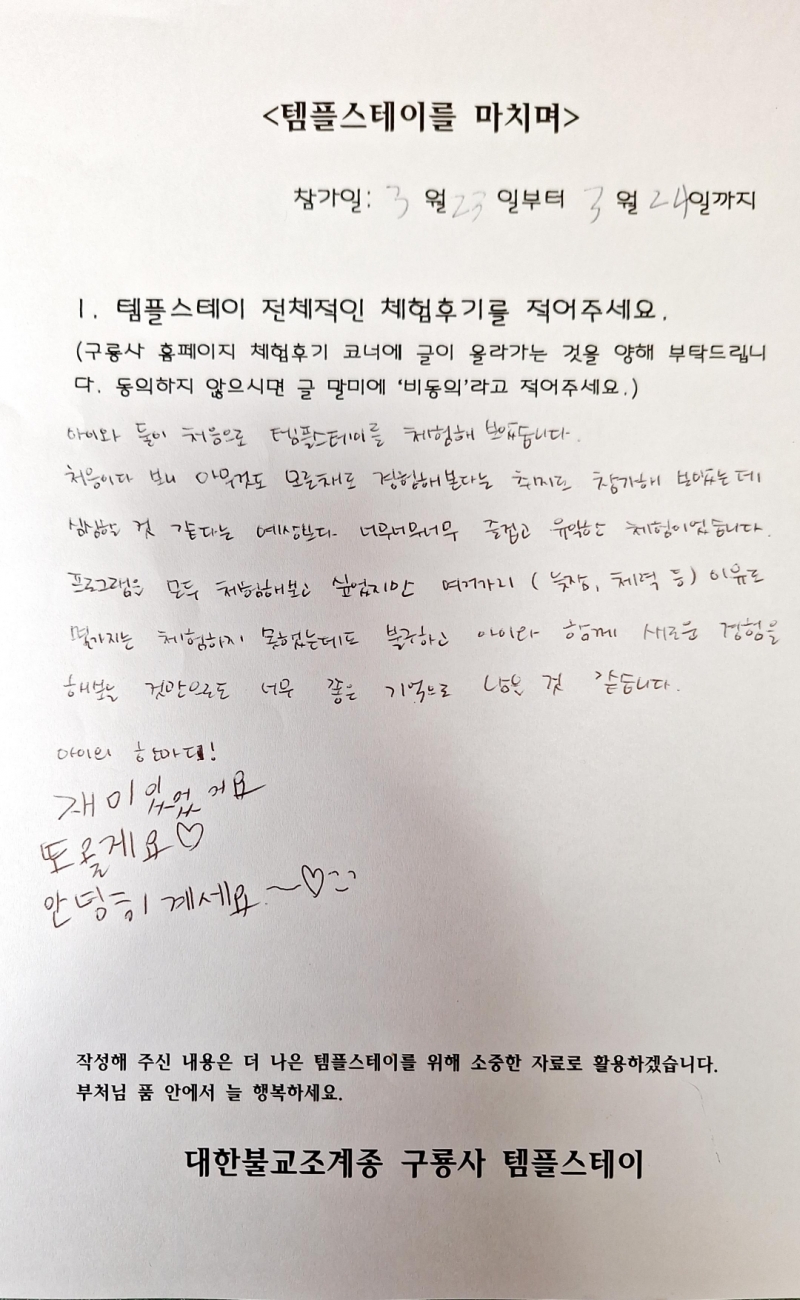 <템플스테이를 마치며>
참가일: 3 월 23 일부터 3 월 24일까지
1. 템플스테이 전체적인 체험후기를 적어주세요.
(구룡사 홈페이지 체험후기 코너에 글이 올라가는 것을 양해 부탁드립니
다. 동의하지 않으시면 글 말미에 '비동의'라고 적어주세요.)
아이와 둘이 처음으로 템플스테이를 체험해 보았습니다.
처음이다 보니 아무것도 모른채로 경험해본다는 취지로 참가해 보았는데
심심할 것 같다는 예상보다 너무너무너무 즐겁고 유익한 체험이었습니다.
프로그램을 모두 체험해보고 싶었지만 여러가지 (늦잠, 체력 등) 이유로
몇가지는 체험하지 못했는데도 불구하고 아이와 함께 새로운 경험을
해보는 것만으로도 너무 좋은 기억으로 남을 것 같습니다.
아이의 한마디!
재미있었어요
또올게요♡
안녕히 계세요~♡
작성해 주신 내용은 더 나은 템플스테이를 위해 소중한 자료로 활용하겠습니다.
부처님 품 안에서 늘 행복하세요.
대한불교조계종 구룡사 템플스테이